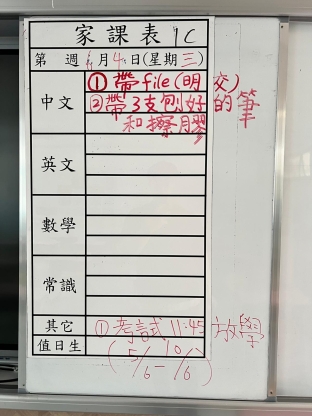 家課表 1C
第 週 6月4日(星期三)
中文
①帶file(明交)
②帶3支刨好的筆
和擦膠
英文
數學
常識
其它
①考試 11:45 放學
值日生
(5/6-10/6)